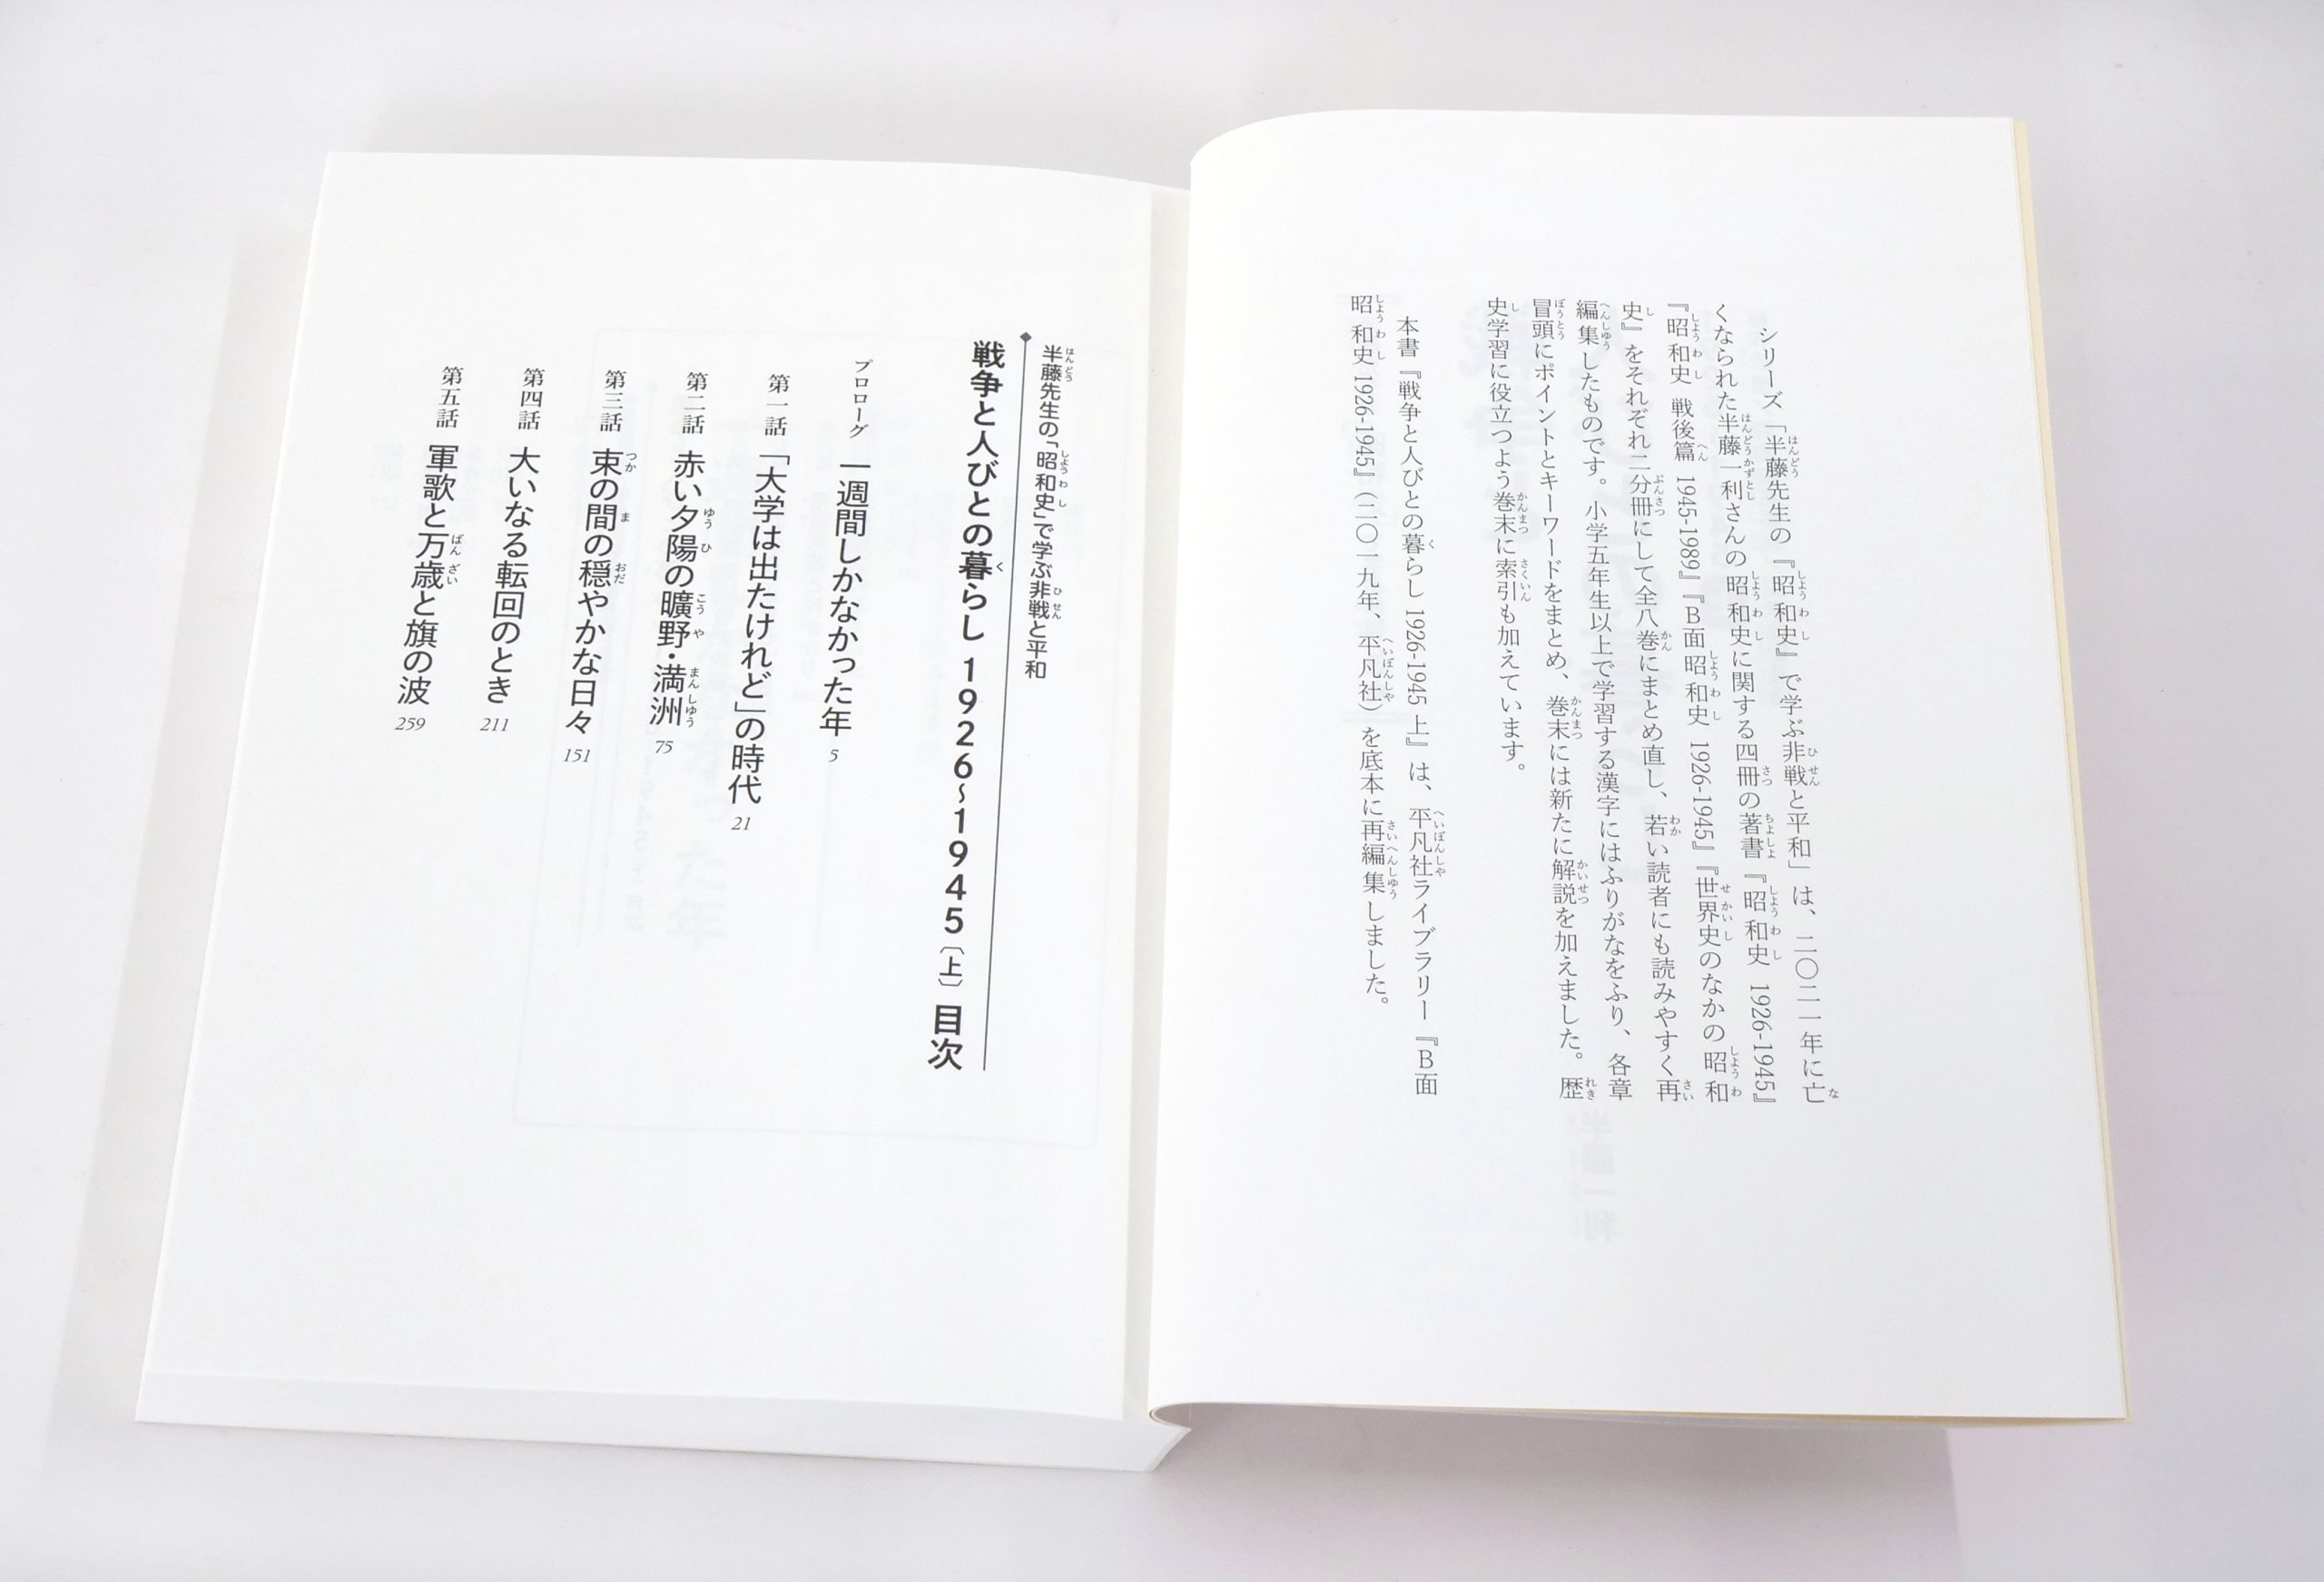 シリーズ「半藤先生の『昭和史』で学ぶ非戦と平和」は、二〇二一年に亡
くなられた半藤一利さんの昭和史に関する四冊の著書『昭和史 1926-1945』
『昭和史 戦後篇 1945-1989』『B面昭和史 1926-1945』『世界史のなかの昭和
史』をそれぞれ二分冊にして全八巻にまとめ直し、若い読者にも読みやすく再
編集したものです。小学五年生以上で学習する漢字にはふりがなをふり、各章
冒頭にポイントとキーワードをまとめ、巻末には新たに解説を加えました。歴
史学習に役立つよう巻末に索引も加えています。
本書『戦争と人びとの暮らし 1926-1945 上』は、平凡社ライブラリー『B面
昭和史 1926-1945』（二〇一九年、平凡社）を底本に再編集しました。
半藤先生の「昭和史」で学ぶ非戦と平和
戦争と人びとの暮らし 1926〜1945〔上〕 目次
プロローグ 一週間しかなかった年 5
第一話 「大学は出たけれど」の時代 21
第二話 赤い夕陽の曠野・満洲 75
第三話 束の間の穏やかな日々 151
第四話 大いなる転回のとき 211
第五話 軍歌と万歳と旗の波 259